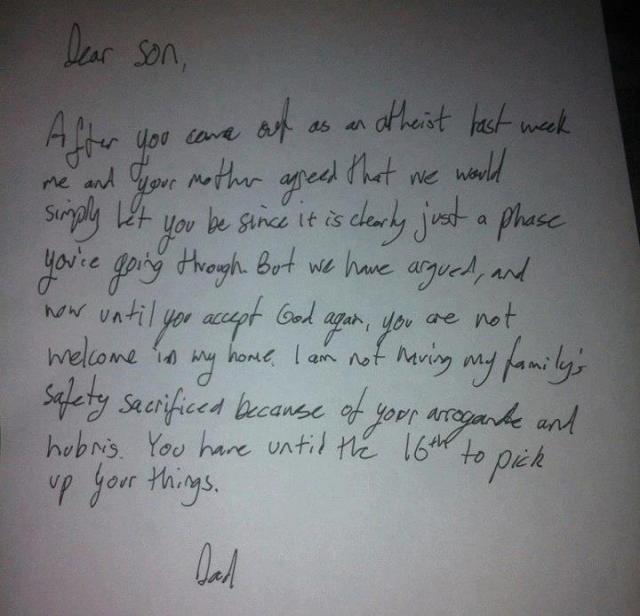 Dear son,
After you came out as an atheist last week
me and your mother agreed that we would
simply let you be since it is clearly just a phase
you're going through. But we have argued, and
now until you accept God again, you are not
welcome in my home. I am not having my family's
safety sacrificed because of your arrogance and
hubris. You have until the 16th to pick
up your things.
Dad